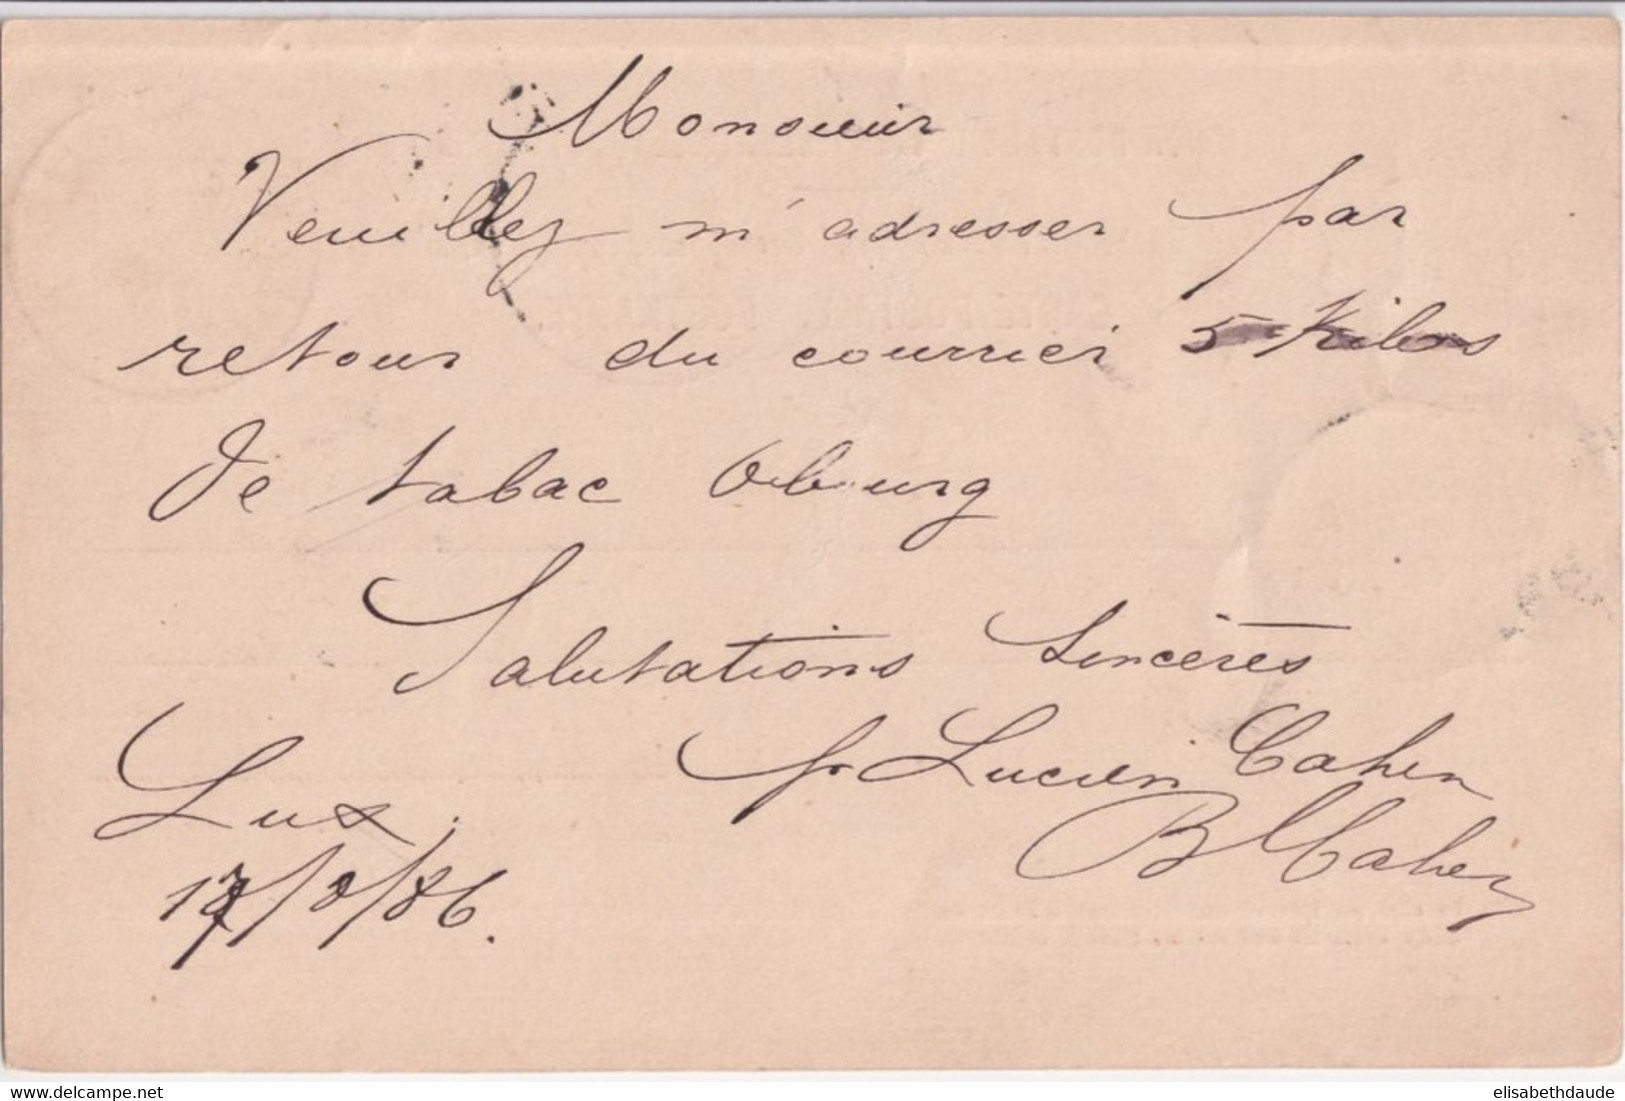 Monsieur
Veuillez m'adresser par
retour du courrier 5 Kilos
de tabac Obourg
Salutations sincères
pr Lucien Cahen
B Cahen
Lux.
17/8/86.
delcampe.net
elisabethdaude